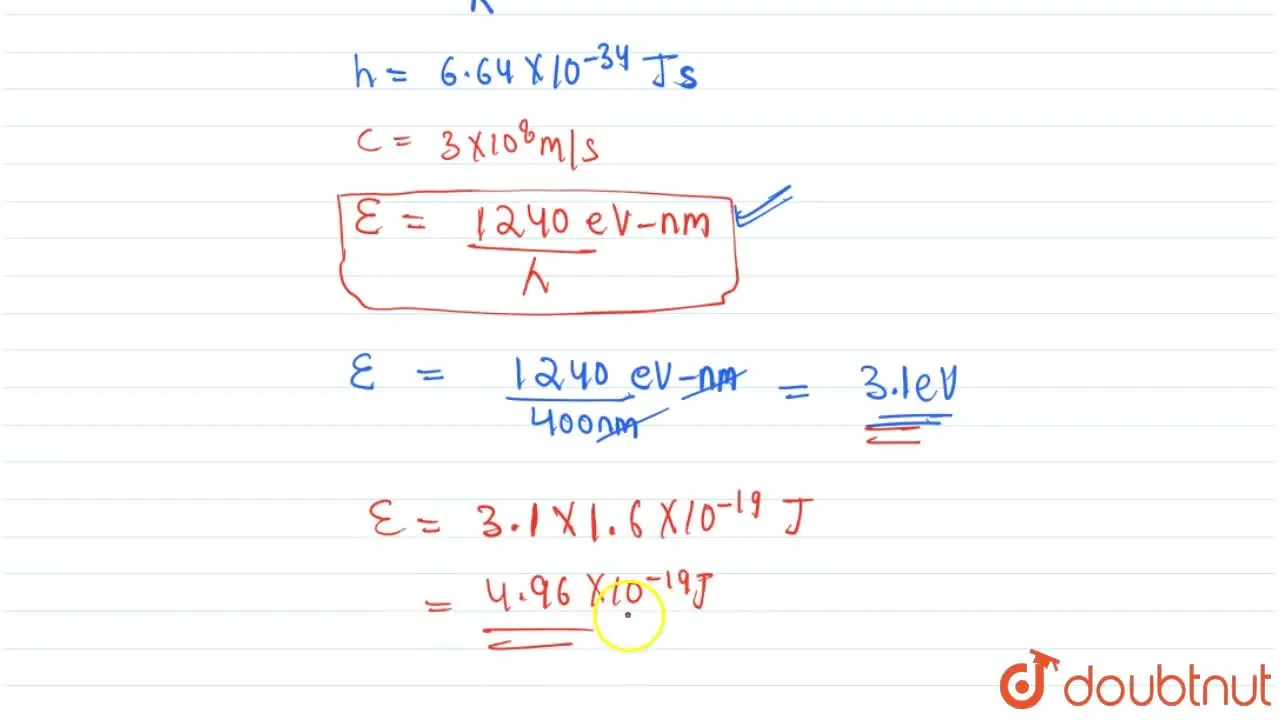 h = 6.64 × 10⁻³⁴ Js
C = 3 × 10⁸ m/s
ε = 1240 eV-nm
λ
ε = 1240 eV-nm / 400nm = 3.1eV
ε = 3.1 × 1.6 × 10⁻¹⁹ J
= 4.96 × 10⁻¹⁹ J
doubtnut